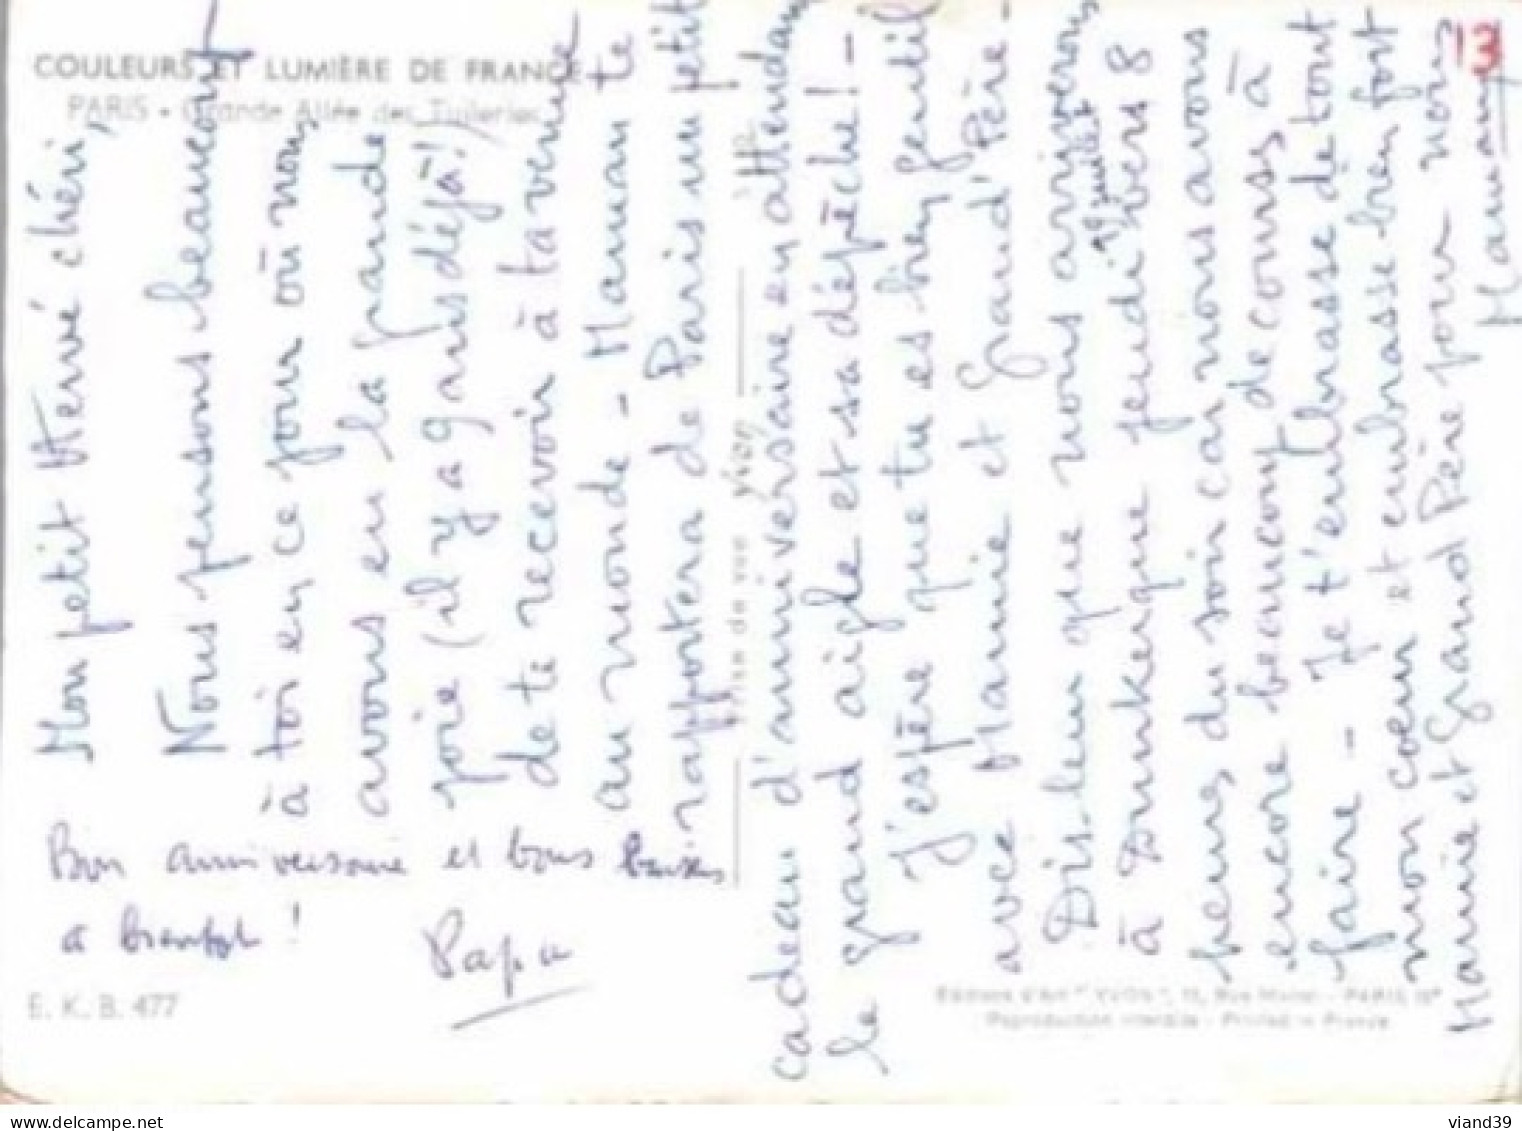 COULEURS ET LUMIÈRE DE FRANCE
PARIS - Grande Allée des Tuileries
Mon petit Hervé chéri,
Nous pensons beaucoup
à toi en ce jour où nous
avons eu la grande
joie (il y a 9 ans déjà!)
de te recevoir à ta venue
au monde - Maman te
rapportera de Paris un petit
cadeau d'anniversaire en attendant
le grand aigle et sa dépêche! -
J'espère que tu es bien gentil
avec Mamie et Grand'Père -
Dis-leur que nous arriverons
à Dunkerque jeudi vers 8
19 juillet
heures du soir car nous avons
encore beaucoup de courses à
faire - Je t'embrasse de tout
mon coeur et embrasse bien fort
Mamie et Grand Père pour nous
Maman
Bon anniversaire et bons baisers
a bientot !
Papa
13
plan de vue yvon
E. K. B. 477
Editions d'Art "YVON", 15, Rue Martel - PARIS 10e
Reproduction interdite - Printed in France
delcampe.net
viand39